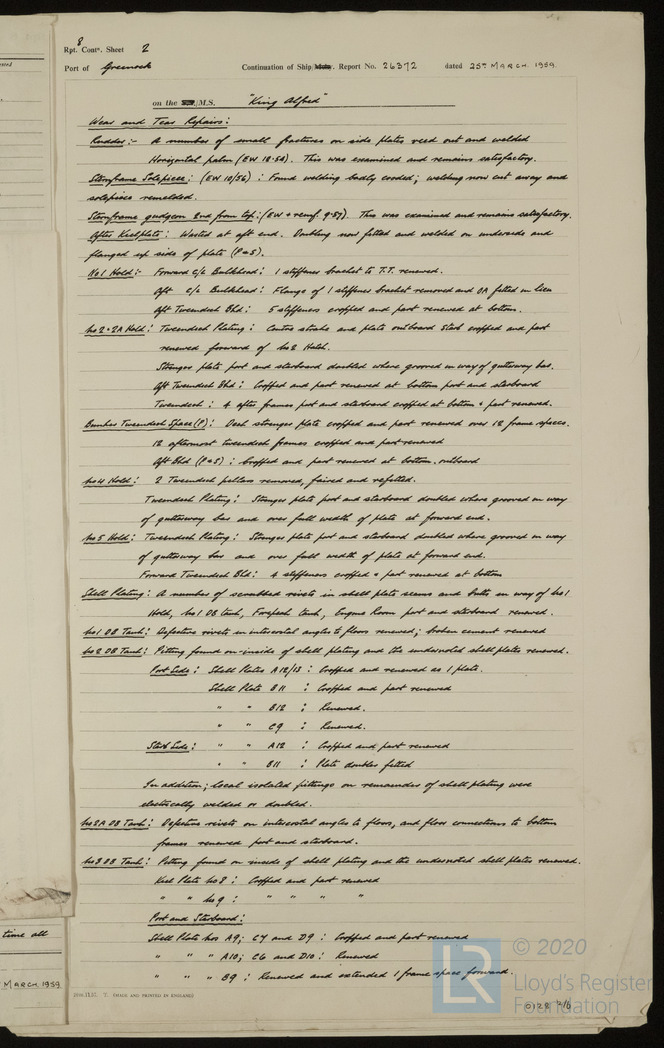 8
Rpt. Contn. Sheet 2
Port of Greenock Continuation of Ship Report No. 26372 dated 25th MARCH 1959.
on the M.S. "King Alfred"
Wear and Tear Repairs:
Rudder:- A number of small fractures on side plates veed out and welded
Horizontal palm (EW 12.54). This was examined and remains satisfactory.
Sternframe Solepiece: (EW 10/56): Found welding badly eroded; welding now cut away and
solepiece rewelded.
Sternframe gudgeon 2nd from top: (EW & reinf. 9.57). This was examined and remains satisfactory.
After Keelplate: Wasted at aft end. Doubling now fitted and welded on underside and
flanged up side of plate (P&S).
No1 Hold:- Forward c/c Bulkhead: 1 stiffener bracket to T.T. renewed.
Aft c/c Bulkhead: Flange of 1 stiffener bracket removed and OA fitted in lieu
Aft Tweendeck Bhd: 5 stiffeners cropped and part renewed at bottom.
No 2 & 2A Hold: Tweendeck Plating: Centre strake and plate outboard Stbd cropped and part
renewed forward of No 2 Hatch.
Stringer plate port and starboard doubled where grooved in way of gutterway bar.
Aft Tweendeck Bhd: Cropped and part renewed at bottom port and starboard
Tweendeck: 4 after frames port and starboard cropped at bottom & part renewed.
Bunker Tweendeck Space (P): Deck stringer plate cropped and part renewed over 12 frame spaces.
12 aftermost tweendeck frames cropped and part renewed
Aft Bhd (P&S): Cropped and part renewed at bottom outboard
No 4 Hold: 2 Tweendeck pillars removed, faired and refitted.
Tweendeck Plating: Stringer plate port and starboard doubled where grooved in way
of gutterway bar and over full width of plate at forward end.
No 5 Hold: Tweendeck Plating: Stringer plate port and starboard doubled where grooved in way
of gutterway bar and over full width of plate at forward end.
Forward Tweendeck Bhd: 4 stiffeners cropped & part renewed at bottom
Shell Plating: A number of scrubbed rivets in shell plate seams and butts in way of No 1
Hold, No 1 DB tank, Forepeak tank, Engine Room port and starboard renewed.
No 1 DB Tank: Defective rivets in intercostal angles to floors renewed; broken cement renewed
No 2 DB Tank: Pitting found on inside of shell plating and the undernoted shell plates renewed.
Port Side: Shell Plates A 12/13 : Cropped and renewed as 1 plate.
Shell Plate B 11 : Cropped and part renewed
" " B12 : Renewed.
" " C9 : Renewed.
Stbd Side: " " A12 : Cropped and part renewed
" " B11 : Plate doubler fitted
In addition; local isolated pittings on remainder of shell plating were
electrically welded or doubled.
No 2A DB Tank: Defective rivets on intercostal angles to floors, and floor connections to bottom
frames renewed port and starboard.
No 3 DB Tank: Pitting found on inside of shell plating and the undernoted shell plates renewed.
Keel Plate No 8 : Cropped and part renewed
" " No 9 : " " " "
Port and Starboard:
Shell Plate Nos A9; C4 and D9 : Cropped and part renewed
" " " A10; C6 and D10 : Renewed
" " " B9 : Renewed and extended 1 frame space forward.
(MADE AND PRINTED IN ENGLAND)
time all
MARCH 1959
LR
© 2020
Lloyd's Register
Foundation